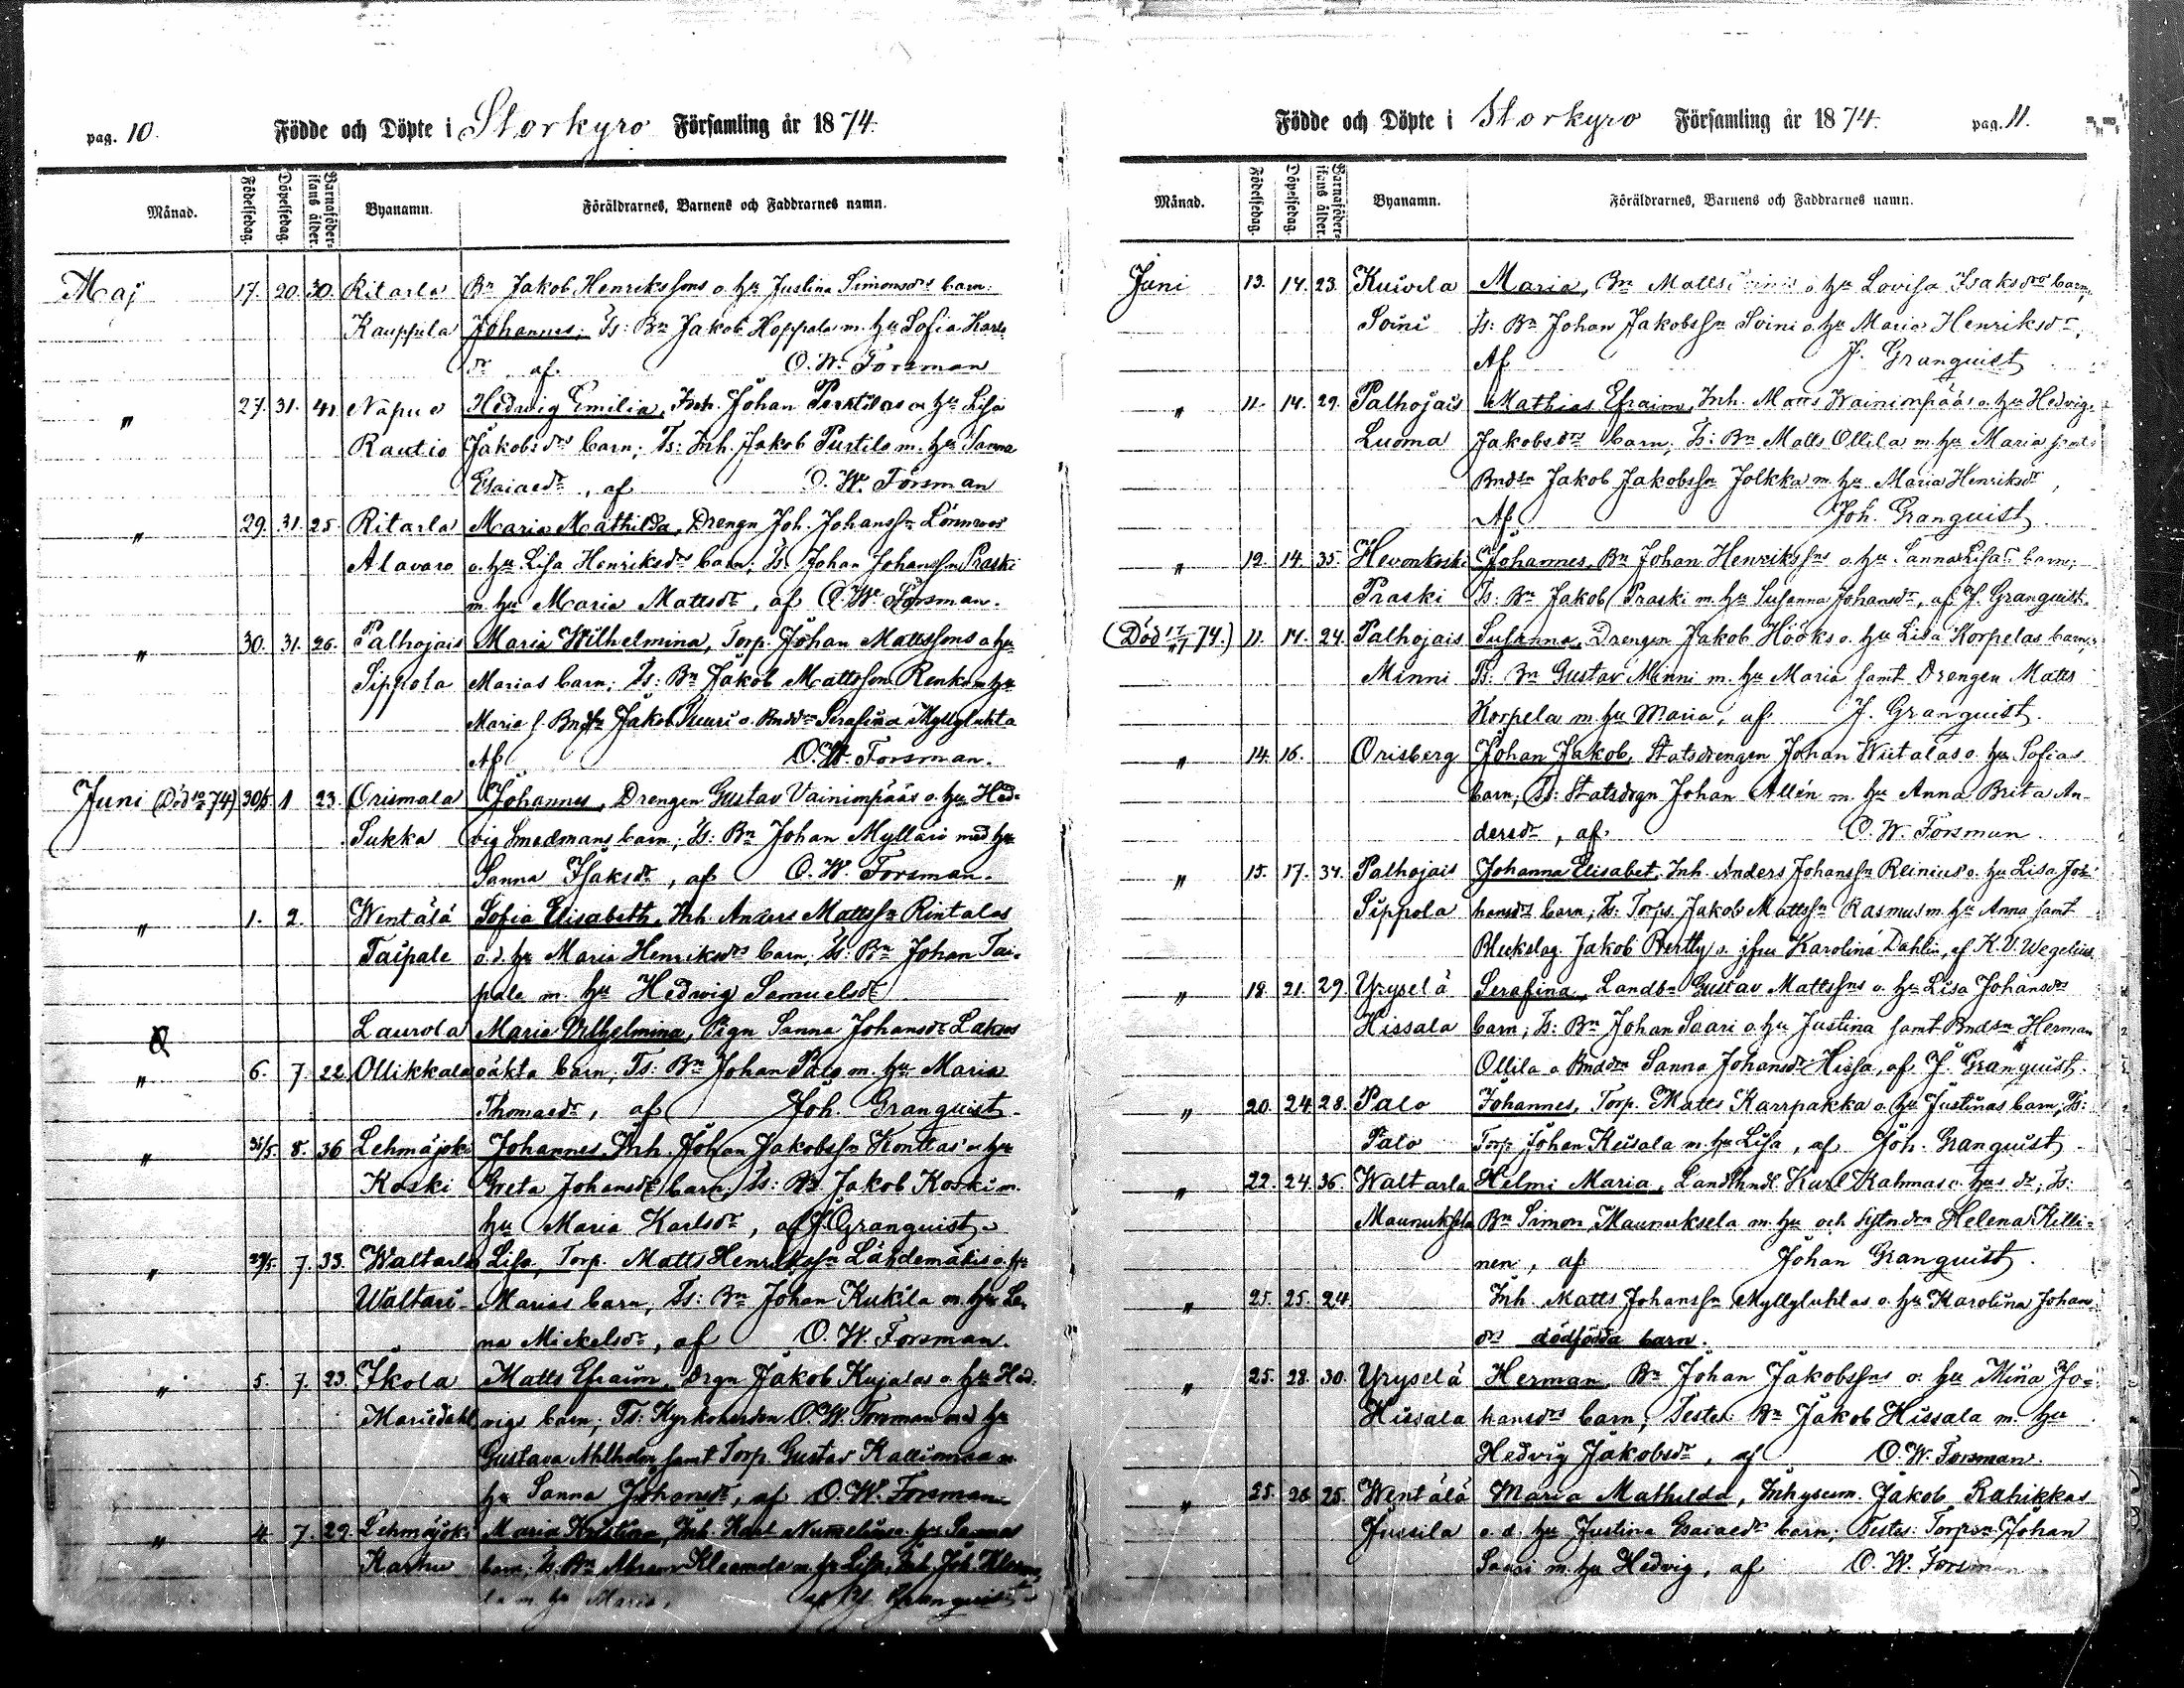 pag. 10. Födde och Döpte i Storkyro Församling år 1874.
Månad. Födelsedag. Döpelsedag. Barnaföderskans ålder. Byanamn. Föräldrarnes, Barnens och Faddrarnes namn.
Maj 17. 20. 30. Ritarla Bn Jakob Henrikssons o. hu Justina Simonsdrs barn:
Kauppila Johannes; Ts: Bn Jakob Hoppala m. hu Sofia Karls
dr af O. W. Forsman
" 27. 31. 41. Napue Hedwig Emilia, Inh. Johan o. hu Lisa
Rautio Jakobsdrs barn; Ts: Inh. Jakob Purtilo m. hu Sanna
Esaiaedr, af O. W. Forsman
" 29. 31. 25. Ritarla Maria Mathilda, Drengn Joh. Johanssn Lönnroos
Alavaro o. hu Lisa Henriksdrs barn; Ts. Johan Johanssn Praski
m. hu Maria Mattsdr, af O. W. Forsman.
" 30. 31. 26. Palhojais Maria Wilhelmina, Torp. Johan Mattssons o hu
Sippola Marias barn; Ts: Bn Jakob Mattsson Renko m hu
Maria s. Bndsn Jakob Suuri o. Bnddn Serafina Myllyluhta
Af O. W. Forsman.
Juni (Död 74) 30/5. 1 23. Orismala Johannes, Drengen Gustav Vainimpääs o. hu Hed-
Sukka vig Smedmans barn; Ts: Bn Johan Mylläri med hu
Sanna Isaksdr, af O. W. Forsman.
" 1. 2. Wentälä Sofia Elisabeth, Inh. Anders Mattssn Rintalas
Taipale o. d. hu Maria Henriksdrs barn; Ts: Bn Johan Tai-
pale m. hu Hedwig Samuelsdr
Laurola Maria Wilhelmina, Pign Sanna Johansdr Laksos
" 6. 7 22. Ollikkala oäkta barn; Ts: Bn Johan Palo m. hu Maria
Thomaedr, af Joh. Granquist.
" 31/5. 8. 36 Lehmäjoki Johannes, Inh. Johan Jakobssn Konttas o. hu
Koski Greta Johansdrs barn; Ts: Bn Jakob Koski m.
hu Maria Karlsdr, af J. Granquist.
" 29/5. 7. 33. Waltarla Lisa, Torp. Matts Henrikssn Lähdemäkis o. hu
Waltari Marias barn; Ts: Bn Johan Kukila m. hu Le-
na Mickelsdr, af O. W. Forsman.
" 5. 7. 23. Ikola Matts Efraim, Drgn Jakob Kujalas o. hu Hed-
Mariedahl vigs barn; Ts: Kyrkoherden O. W. Forsman med hu
Gustava Ahlholm samt Torp. Gustav Kalliomaa m.
hu Sanna Johansdr, af O. W. Forsman.
" 4. 7. 29. Lehmäjoki Maria Kristina, Inh. Karl Numelins o. hu Sannas
Karhu barn; Ts. Bn Abram Kleemola m. hu Lisa, Inh. Joh. Kleemo-
la m. hu Maria, af Granquist
Födde och Döpte i Storkyro Församling år 1874. pag. 11.
Månad. Födelsedag. Döpelsedag. Barnaföderskans ålder. Byanamn. Föräldrarnes, Barnens och Faddrarnes namn.
Juni 13. 14. 23. Kuivila Maria, Bn Matts o. hu Lovisa Isaksdrs barn;
Soini Ts: Bn Johan Jakobssn Soini o. hu Maria Henriksdr,
Af J. Granquist
" 11. 14. 29. Palhojais Mathias Efraim, Inh. Matts Wainimpääs o. hu Hedvig
Luoma Jakobsdrs barn; Ts: Bn Matts Ollila m. hu Maria samt
Bndsn Jakob Jakobssn Jolkka m. hu Maria Henriksdr,
Af Joh. Granquist.
" 12. 14. 35. Hevonkoski Johannes, Bn Johan Henrikssns o. hu Sanna Lisas barn;
Praski Ts: Bn Jakob Praski m. hu Susanna Johansdr, af J. Granquist.
(Död 74.) 11. 14. 24. Palhojais Susanna, Drengen Jakob Hööks o. hu Lisa Korpelas barn;
Minni Ts: Bn Gustav Minni m. hu Maria samt Drengen Matts
Korpela m. hu Maria, af J. Granquist.
" 14. 16. Orisberg Johan Jakob, Statsdrengen Johan Wiitalas o. hu Sofias
barn; Ts: Statsdrgn Johan Allén m. hu Anna Brita An-
dersdr, af O. W. Forsman.
" 15. 17. 34. Palhojais Johanna Elisabet, Inh. Anders Johanssn Reinius o. hu Lisa Jo-
Sippola hansdrs barn; Ts: Torp. Jakob Mattssn Rasmus m. hu Anna samt
Bleckslag. Jakob Pertty o. jfru Karolina Dahlin, af K. V. Wegelius.
" 18. 21. 29. Yryselä Serafina, Landbn Gustav Mattssns o. hu Lisa Johansdrs
Hissala barn; Ts: Bn Johan Saari o. hu Justina samt Bndsn Herman
Ollila o Bnddrn Sanna Johansdr Hissa, af J. Granquist.
" 20. 24. 28. Palo Johannes, Torp. Matts Karrpakka o. hu Justinas barn; Ts:
Palo Torp. Johan Keisala m. hu Lisa, af Joh. Granquist.
" 22. 24. 36. Waltarla Helmi Maria, Landthndl. Karl Kahmas o. hus dr; Ts:
Maunuksela Bn Simon Maunuksela m. hu och Sytndrn Helena Killi-
nen, af Johan Granquist.
" 25. 25. 24 Inh. Matts Johanssn Myllyluhtas o. hu Karolina Johans-
drs dödfödda barn.
" 25. 28. 30. Yryselä Herman, Bn Johan Jakobssns o. hu Mina Jo-
Hissala hansdrs barn; Testes: Bn Jakob Hissala m. hu
Hedvig Jakobsdr, af O. W. Forsman.
" 25. 26. 25. Wentälä Maria Mathilda, Inhysem. Jakob Rahikkas
Jussila o. d. hu Justina Esaiaedrs barn; Testes: Torpsn Johan
Saari m. hu Hedvig, af O. W. Forsman